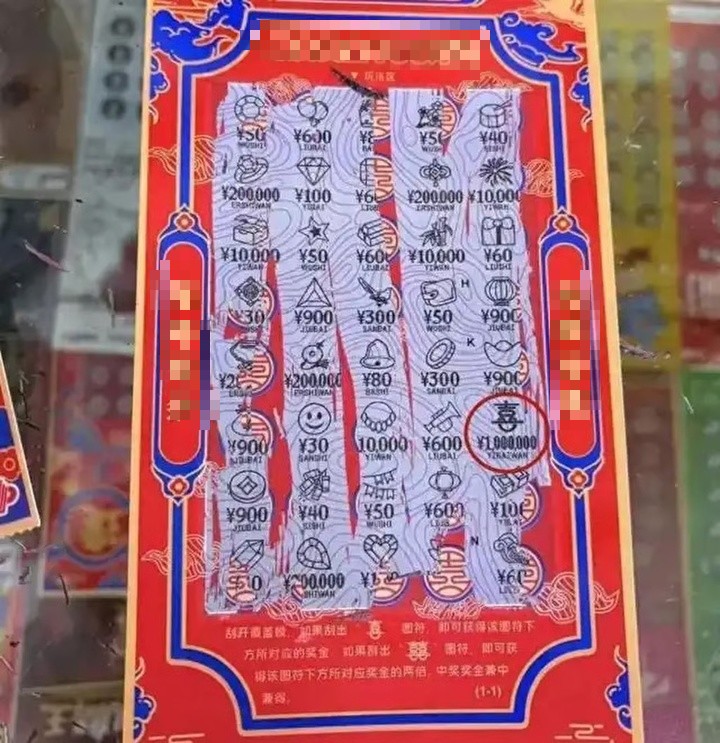 ▼ 玩法区
¥50 ¥600 ¥50 ¥40
WUSHI LIUBAI WUSHI SISHI
¥200,000 ¥100 ¥200,000 ¥10,000
ERSHIWAN YIBAI ERSHIWAN YIWAN
¥10,000 ¥50 ¥600 ¥10,000 ¥60
YIWAN WUSHI LIUBAI YIWAN LIUSHI
H
¥30 ¥900 ¥300 ¥50 ¥900
JIUBAI SANBAI WUSHI JIUBAI
K
¥200,000 ¥80 ¥300 ¥900
ERSHIWAN BASHI SANBAI JIUBAI
喜
¥900 ¥30 10,000 ¥600 ¥1,000,000
JIUBAI SANSHI YIWAN LIUBAI YIBAIWAN
¥900 ¥40 ¥50 ¥600 ¥100
JIUBAI SISHI WUSHI
N
¥200,000
刮开覆盖膜，如果刮出“喜”图符，即可获得该图符下
方所对应的奖金；如果刮出“囍”图符，即可获
得该图符下方所对应奖金的两倍。中奖奖金兼中
兼得。 (1-1)